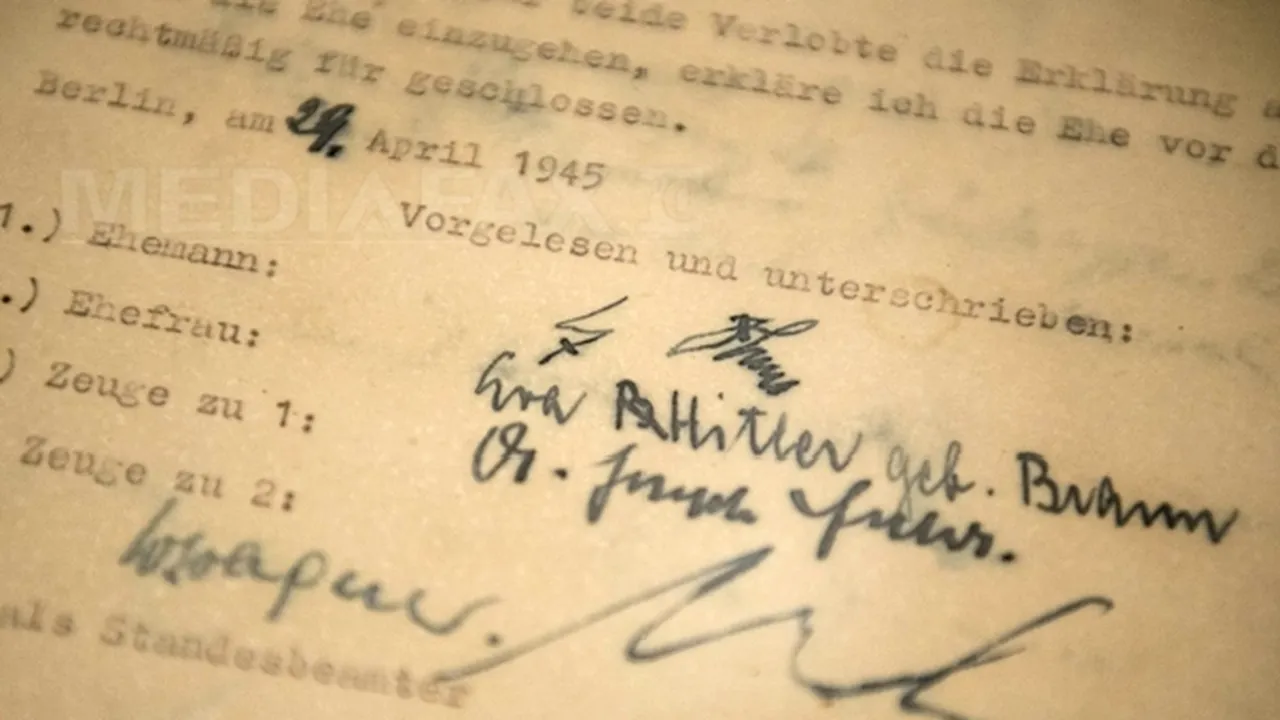 beide Verlobte die Erklärung
die Ehe einzugehen, erkläre ich die Ehe vor d
rechtmäßig für geschlossen.
Berlin, am 29. April 1945
MEDIAFAX
Vorgelesen und unterschrieben:
1.) Ehemann:
.) Ehefrau:
Eva B Hitler geb. Braun
) Zeuge zu 1:
Dr. Joseph Goebbels.
Zeuge zu 2:
Wagner.
als Standesbeamter